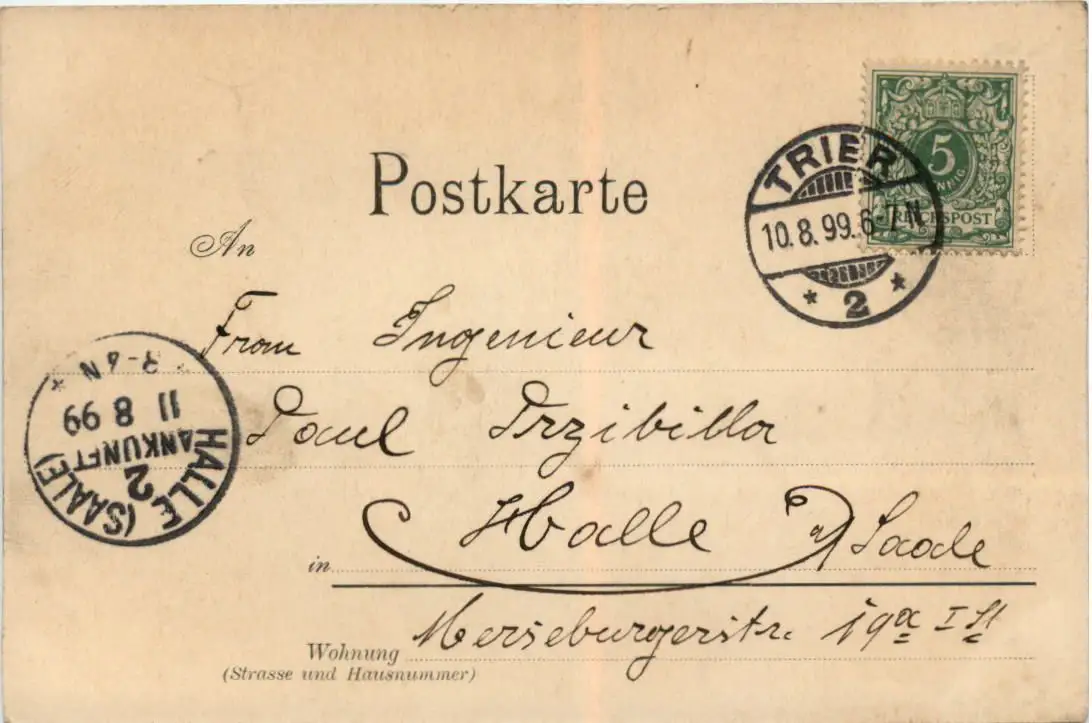 Postkarte
TRIER
10.8.99.6-7N
* 2 *
5
PFENNIG
REICHSPOST
An
Frau Ingenieur
Paul Przibilla
in Halle a/Saale
Wohnung Merseburgerstr. 19a I St
(Strasse und Hausnummer)
HALLE (SAALE)
2
ANKUNFT
11 8 99